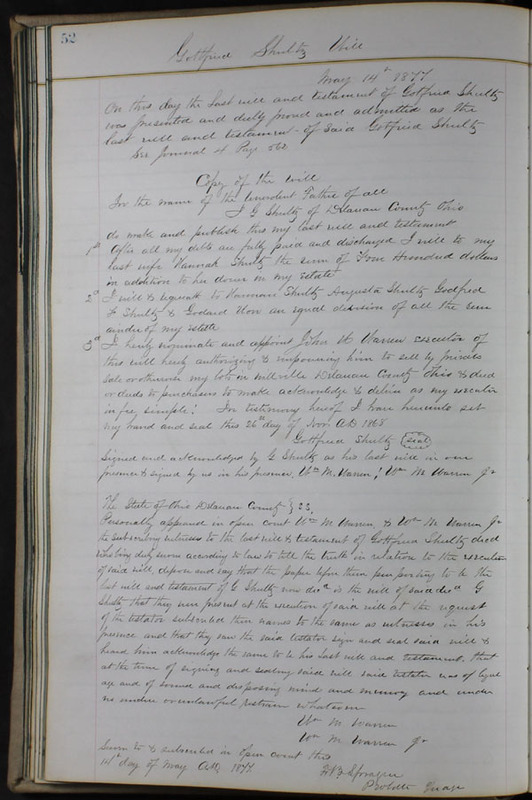 52
Gottfried Shultz Will
May 14th 1877
On this day the last will and testament of Gotfried Shultz
was presented and duly proved and admitted as the
last will and testament of said Gotfried Shultz
See Journal 4 Page 562
Copy of the Will
In the name of the benevolent Father of all
I G Shultz of Delaware County Ohio
do make and publish this my last will and testament
1st After all my debts are fully paid and discharged I will to my
last wife Hannah Shultz the sum of Four Hundred dollars
in addition to her dower in my estate
2d I will & bequeath to Herman Shultz Augusta Shultz Godfred
F Shultz & Godard an equal division of all the rem
ainder of my estate
3d I hereby nominate and appoint John W Warren executor of
this will hereby authorizing & empowering him to sell by private
sale or otherwise my lots in Millville Delaware County Ohio & deed
or deeds to purchasers to make acknowledge & deliver as my executor
in fee simple. In testimony hereof I have hereunto set
my hand and seal this 26th day of Nov. AD 1868
Gottfried Shultz (seal)
Signed and acknowledged by G Shultz as his last will in our
presence & signed by us in his presence, Wm M. Warren, Wm M Warren Jr
The State of Ohio Delaware County } SS,
Personally appeared in open court Wm M Warren, & Wm M Warren Jr
the subscribing witnesses to the last will & testament of Gottfried Shultz decd
who being duly sworn according to law to tell the truth in relation to the execution
of said will, depose and say that the paper before them purporting to be the
last will and testament of G Shultz now decd is the will of said decd G
Shultz that they were present at the execution of said will at the request
of the testator subscribed their names to the same as witnesses in his
presence and that they saw the said testator sign and seal said will &
heard him acknowledge the same to be his last will and testament, that
at the time of signing and sealing said will said testator was of legal
age and of sound and disposing mind and memory and under
no undue or unlawful restraint whatever
Wm M Warren
Wm M Warren Jr
Sworn to & subscribed in open court this
14th day of May A.D. 1877
Sprague
Probate Judge